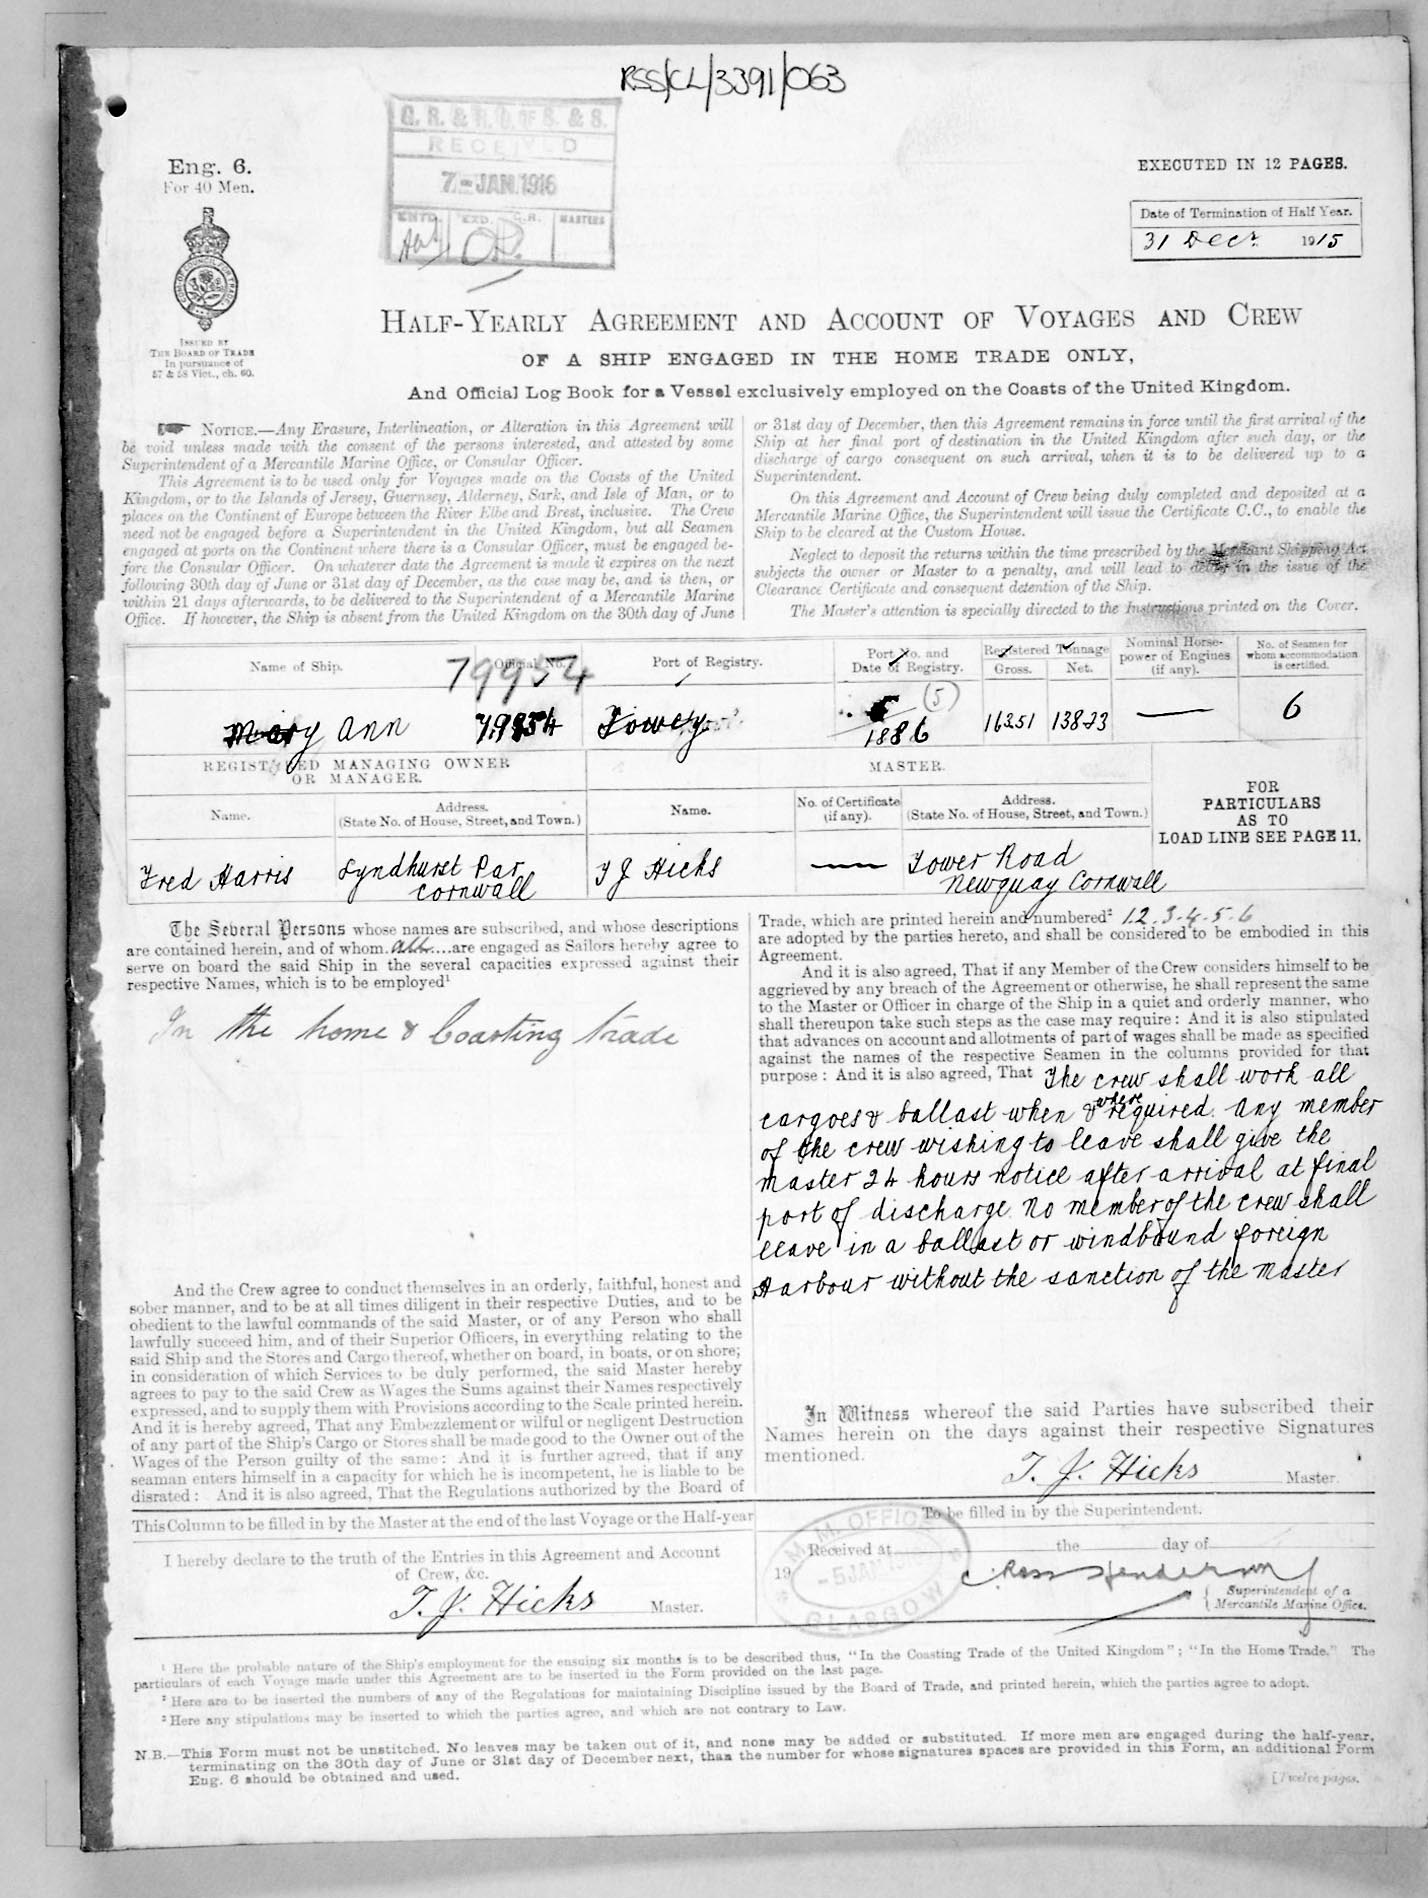 RSS/CL/3391/063
Eng. 6.
For 40 Men.
G. R. & R. O. OF S. & S.
RECEIVED
7-JAN.1916
ENTD. EXD. C.R. MASTERS
EXECUTED IN 12 PAGES.
Date of Termination of Half Year.
31 Decr. 1915
ISSUED BY
THE BOARD OF TRADE
In pursuance of
57 & 58 Vict., ch. 60.
HALF-YEARLY AGREEMENT AND ACCOUNT OF VOYAGES AND CREW
OF A SHIP ENGAGED IN THE HOME TRADE ONLY,
And Official Log Book for a Vessel exclusively employed on the Coasts of the United Kingdom.
NOTICE.—Any Erasure, Interlineation, or Alteration in this Agreement will
be void unless made with the consent of the persons interested, and attested by some
Superintendent of a Mercantile Marine Office, or Consular Officer.
This Agreement is to be used only for Voyages made on the Coasts of the United
Kingdom, or to the Islands of Jersey, Guernsey, Alderney, Sark, and Isle of Man, or to
places on the Continent of Europe between the River Elbe and Brest, inclusive. The Crew
need not be engaged before a Superintendent in the United Kingdom, but all Seamen
engaged at ports on the Continent where there is a Consular Officer, must be engaged be-
fore the Consular Officer. On whatever date the Agreement is made it expires on the next
following 30th day of June or 31st day of December, as the case may be, and is then, or
within 21 days afterwards, to be delivered to the Superintendent of a Mercantile Marine
Office. If however, the Ship is absent from the United Kingdom on the 30th day of June
or 31st day of December, then this Agreement remains in force until the first arrival of the
Ship at her final port of destination in the United Kingdom after such day, or the
discharge of cargo consequent on such arrival, when it is to be delivered up to a
Superintendent.
On this Agreement and Account of Crew being duly completed and deposited at a
Mercantile Marine Office, the Superintendent will issue the Certificate C.C., to enable the
Ship to be cleared at the Custom House.
Neglect to deposit the returns within the time prescribed by the Merchant Shipping Act
subjects the owner or Master to a penalty, and will lead to delay in the issue of the
Clearance Certificate and consequent detention of the Ship.
The Master's attention is specially directed to the Instructions printed on the Cover.
Name of Ship. Official No. Port of Registry. Port No. and Date of Registry. Registered Tonnage Gross. Net. Nominal Horse-power of Engines (if any). No. of Seamen for whom accommodation is certified.
79954
Mary Ann 79954 Fowey (5) 1886 163.51 138.23 — 6
REGISTERED MANAGING OWNER
OR MANAGER.
MASTER.
FOR
PARTICULARS
AS TO
LOAD LINE SEE PAGE 11.
Name. Address. (State No. of House, Street, and Town.) Name. No. of Certificate (if any). Address. (State No. of House, Street, and Town.)
Fred Harris Lyndhurst Par T J Hicks — Tower Road
Cornwall Newquay Cornwall
The Several Persons whose names are subscribed, and whose descriptions
are contained herein, and of whom all are engaged as Sailors hereby agree to
serve on board the said Ship in the several capacities expressed against their
respective Names, which is to be employed¹
In the home & Coasting trade
And the Crew agree to conduct themselves in an orderly, faithful, honest and
sober manner, and to be at all times diligent in their respective Duties, and to be
obedient to the lawful commands of the said Master, or of any Person who shall
lawfully succeed him, and of their Superior Officers, in everything relating to the
said Ship and the Stores and Cargo thereof, whether on board, in boats, or on shore;
in consideration of which Services to be duly performed, the said Master hereby
agrees to pay to the said Crew as Wages the Sums against their Names respectively
expressed, and to supply them with Provisions according to the Scale printed herein.
And it is hereby agreed, That any Embezzlement or wilful or negligent Destruction
of any part of the Ship's Cargo or Stores shall be made good to the Owner out of the
Wages of the Person guilty of the same: And it is further agreed, that if any
seaman enters himself in a capacity for which he is incompetent, he is liable to be
disrated: And it is also agreed, That the Regulations authorized by the Board of
Trade, which are printed herein and numbered² 1.2.3.4.5.6
are adopted by the parties hereto, and shall be considered to be embodied in this
Agreement.
And it is also agreed, That if any Member of the Crew considers himself to be
aggrieved by any breach of the Agreement or otherwise, he shall represent the same
to the Master or Officer in charge of the Ship in a quiet and orderly manner, who
shall thereupon take such steps as the case may require: And it is also stipulated
that advances on account and allotments of part of wages shall be made as specified
against the names of the respective Seamen in the columns provided for that
purpose: And it is also agreed, That The crew shall work all
cargoes & ballast when & where required. Any member
of the crew wishing to leave shall give the
master 24 hours notice after arrival at final
port of discharge. No member of the crew shall
leave in a ballast or windbound foreign
Harbour without the sanction of the Master
In Witness whereof the said Parties have subscribed their
Names herein on the days against their respective Signatures
mentioned.
T. J. Hicks Master.
This Column to be filled in by the Master at the end of the last Voyage or the Half-year
I hereby declare to the truth of the Entries in this Agreement and Account
of Crew, &c.
T. J. Hicks Master.
To be filled in by the Superintendent.
Received at the day of
19
M. M. OFFICE
-5 JAN
GLASGOW
Ross Henderson
Superintendent of a
Mercantile Marine Office.
¹ Here the probable nature of the Ship's employment for the ensuing six months is to be described thus, "In the Coasting Trade of the United Kingdom"; "In the Home Trade." The
particulars of each Voyage made under this Agreement are to be inserted in the Form provided on the last page.
² Here are to be inserted the numbers of any of the Regulations for maintaining Discipline issued by the Board of Trade, and printed herein, which the parties agree to adopt.
³ Here any stipulations may be inserted to which the parties agree, and which are not contrary to Law.
N.B.—This Form must not be unstitched. No leaves may be taken out of it, and none may be added or substituted. If more men are engaged during the half-year,
terminating on the 30th day of June or 31st day of December next, than the number for whose signatures spaces are provided in this Form, an additional Form
Eng. 6 should be obtained and used.
[Twelve pages.